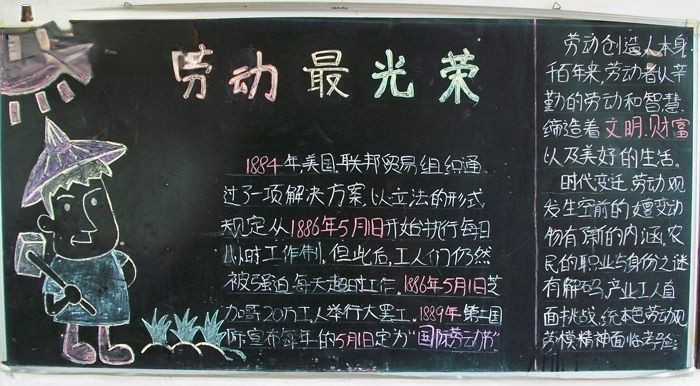 劳动最光荣
1884年,美国联邦贸易组织通
过了一项解决方案以立法的形式,
规定从1886年5月1日开始执行每日
八小时工作制,但此后,工人们仍然
被强迫每天超时工作。1886年5月1日芝
加哥20万工人举行大罢工。1889年第二国
际宣布每年的5月1日定为“国际劳动节”
劳动创造人本身
千百年来,劳动者以辛
勤的劳动和智慧,
缔造着文明、财富
以及美好的生活。
时代变迁,劳动观
发生空前的嬗变,劳动
有了新的内涵,农
民的职业与身份之谜
有解码,产业工人直
面挑战,传统本色劳动观
劳模精神面临考验。